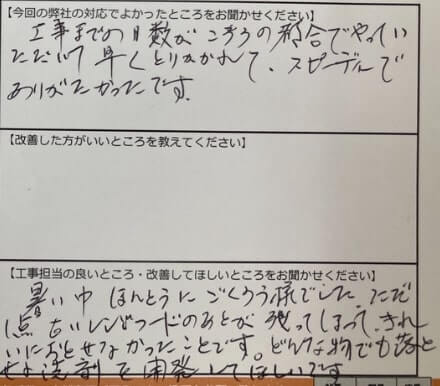 【今回の弊社の対応でよかったところをお聞かせください】
工事までの日数がこちらの都合でやってい
ただいて早くとりかかれて、スピーディで
ありがたかったです。
【改善した方がいいところを教えてください】
【工事担当の良いところ・改善してほしいところをお聞かせください】
暑い中 ほんとうにごくろう様でした。ただ
1点 古いレンジフードのあとが残ってしまって、きれ
いにおとせなかったことです。どんな物でも落と
せる洗剤を開発してほしいです